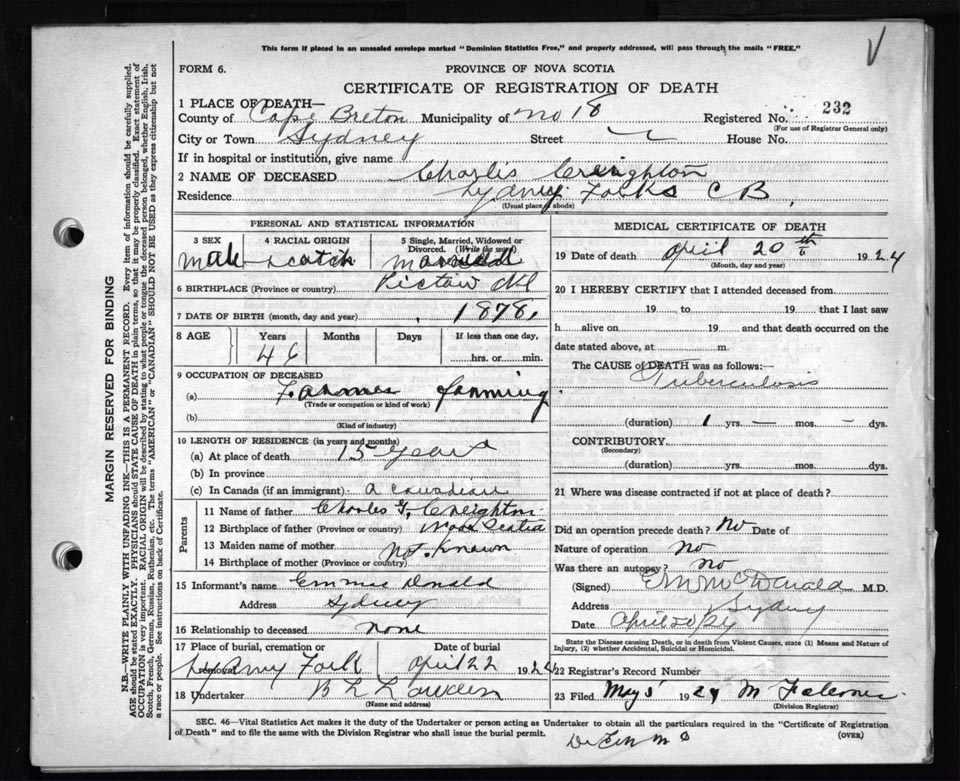 This form if placed in an unsealed envelope marked "Dominion Statistics Free," and properly addressed, will pass through the mails "FREE."
V
FORM 6.
PROVINCE OF NOVA SCOTIA
CERTIFICATE OF REGISTRATION OF DEATH
1 PLACE OF DEATH—
County of Cape Breton Municipality of No 18 Registered No. 232
(For use of Registrar General only)
City or Town Sydney Street House No.
If in hospital or institution, give name
2 NAME OF DECEASED Charlis Creighton
Residence Sydney Forks C B
(Usual place of abode)
PERSONAL AND STATISTICAL INFORMATION
3 SEX 4 RACIAL ORIGIN 5 Single, Married, Widowed or Divorced. (Write the word)
Male Scotch
6 BIRTHPLACE (Province or country) Pictou
7 DATE OF BIRTH (month, day and year) 1878
8 AGE Years Months Days If less than one day,
46 hrs. or min.
9 OCCUPATION OF DECEASED
(a) Farmer farming
(Trade or occupation or kind of work)
(b)
(Kind of industry)
10 LENGTH OF RESIDENCE (in years and months)
(a) At place of death 15 years
(b) In province
(c) In Canada (if an immigrant) a canadian
Parents
11 Name of father Charles Creighton
12 Birthplace of father (Province or country) Nova Scotia
13 Maiden name of mother Not Known
14 Birthplace of mother (Province or country)
15 Informant's name Donald
Address Sydney
16 Relationship to deceased none
17 Place of burial, cremation or removal Date of burial
Sydney Fork April 22 1924
18 Undertaker B L
(Name and address)
MEDICAL CERTIFICATE OF DEATH
19 Date of death April 20th 1924
(Month, day and year)
20 I HEREBY CERTIFY that I attended deceased from
19 to 19 that I last saw
h alive on 19 and that death occurred on the
date stated above, at m.
The CAUSE of DEATH was as follows:—
Tuberculosis
(duration) 1 yrs. — mos. — dys.
CONTRIBUTORY
(Secondary)
(duration) yrs. mos. dys.
21 Where was disease contracted if not at place of death?
Did an operation precede death? No Date of
Nature of operation No
Was there an autopsy? No
(Signed) McDonald M.D.
Address Sydney
Date April 20
State the Disease causing Death, or in death from Violent Causes, state (1) Means and Nature of
Injury, (2) whether Accidental, Suicidal or Homicidal.
22 Registrar's Record Number
23 Filed May 5 1924 M
(Division Registrar)
SEC. 46—Vital Statistics Act makes it the duty of the Undertaker or person acting as Undertaker to obtain all the particulars required in the "Certificate of Registration
of Death" and to file the same with the Division Registrar who shall issue the burial permit.
(OVER)
MARGIN RESERVED FOR BINDING
N.B.—WRITE PLAINLY WITH UNFADING INK—THIS IS A PERMANENT RECORD. Every item of information should be carefully supplied.
AGE should be stated EXACTLY. PHYSICIANS should STATE CAUSE OF DEATH in plain terms, so that it may be properly classified. Exact statement of
OCCUPATION is very important. RACIAL ORIGIN will be described by stating to what people or tongue the deceased person belonged, whether English, Irish,
Scotch, French, German, Russian, Ruthenian, etc. The terms "AMERICAN" or "CANADIAN" SHOULD NOT BE USED as they express citizenship but not
a race or people. See instructions on back of Certificate.